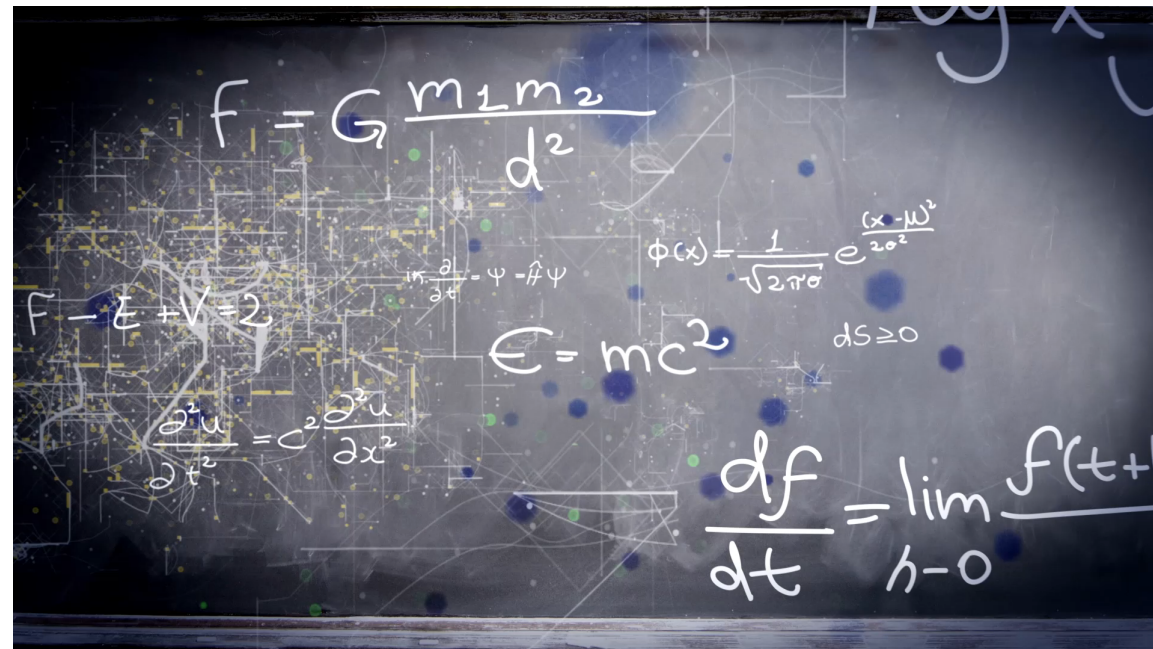 log x y
F = G m1m2 / d²
φ(x) = 1 / √2πσ e (x-μ)² / 2σ²
iħ ∂/∂t = Ψ = ĤΨ
F - E + V = 2
E = mc²
dS ≥ 0
∂²u / ∂t² = c² ∂²u / ∂x²
df / dt = lim h-0 f(t+